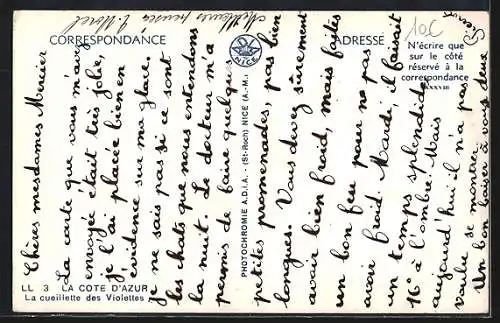 CORRESPONDANCE
ADRESSE
N'écrire que
sur le côté
réservé à la
correspondance
NICE
PHOTOCHROMIE A.D.I.A. - (St-Roch) NICE (A.-M.)
LL 3 LA COTE D'AZUR
La cueillette des Violettes
Chères mesdames Mercier
La carte que vous m'avez
envoyée était très jolie,
je l'ai placée bien en
évidence sur ma glace.
je ne sais pas si ce sont
les chats que nous entendons
la nuit. Le docteur m'a
permis de faire quelques
petites promenades, pas bien
longues. Vous devez sûrement
avoir bien froid, mais faites
un bon feu pour ne pas
avoir froid Mardi, il faisait
un temps splendide
16° à l'ombre. Mais
aujourd'hui il n'a pas
voulu se montrer.
Un bon baiser à vous deux
Pierrot
Meilleures pensées
10c